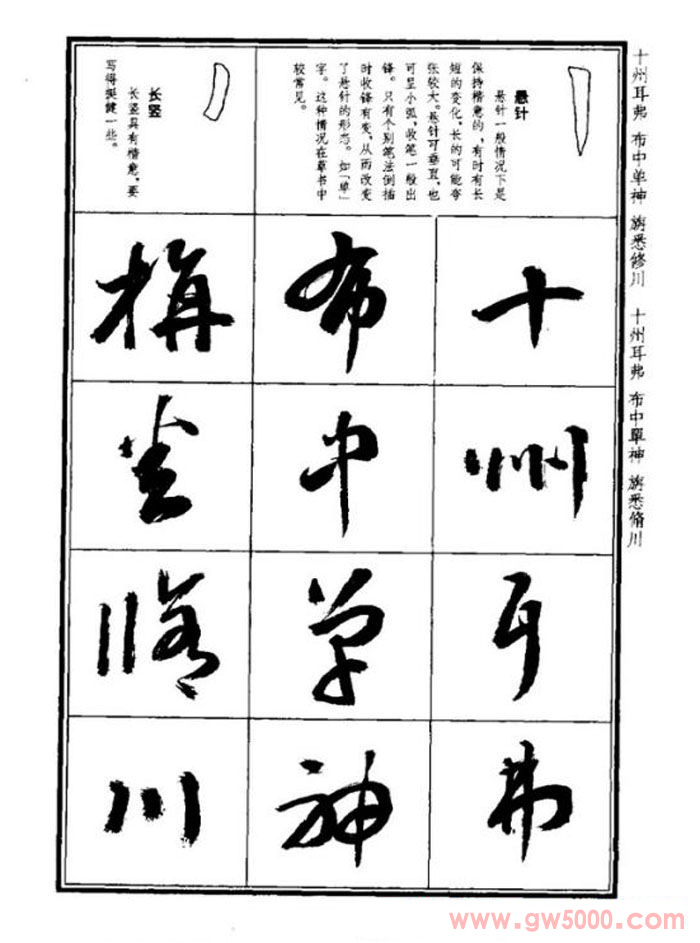 十州耳弗 布中单神 旃悉修川 十州耳弗 布中單神 旃悉脩川
悬针
悬针一般情况下是
保持楷意的,有时有长
短的变化,长的可能夸
张较大。悬针可垂直,也
可呈小弧,收笔一般出
锋。只有个别笔法倒插
时收锋有变,从而改变
了悬针的形态。如「单」
字。这种情况在草书中
较常见。
长竖
长竖具有楷意,要
写得挺健一些。
十
州
耳
弗
布
中
单
神
旃
悉
修
川
www.gw5000.com